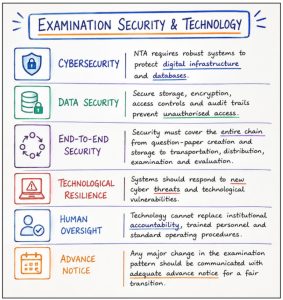 EXAMINATION SECURITY & TECHNOLOGY
CYBERSECURITY
NTA requires robust systems to
protect digital infrastructure
and databases.
DATA SECURITY
Secure storage, encryption,
access controls and audit trails
prevent unauthorised access.
END-TO-END
SECURITY
Security must cover the entire chain
from question-paper creation and
storage to transportation, distribution,
examination and evaluation.
TECHNOLOGICAL
RESILIENCE
Systems should respond to new
cyber threats and technological
vulnerabilities.
HUMAN
OVERSIGHT
Technology cannot replace institutional
accountability, trained personnel and
standard operating procedures.
ADVANCE
NOTICE
Any major change in the examination
pattern should be communicated with
adequate advance notice for a fair
transition.